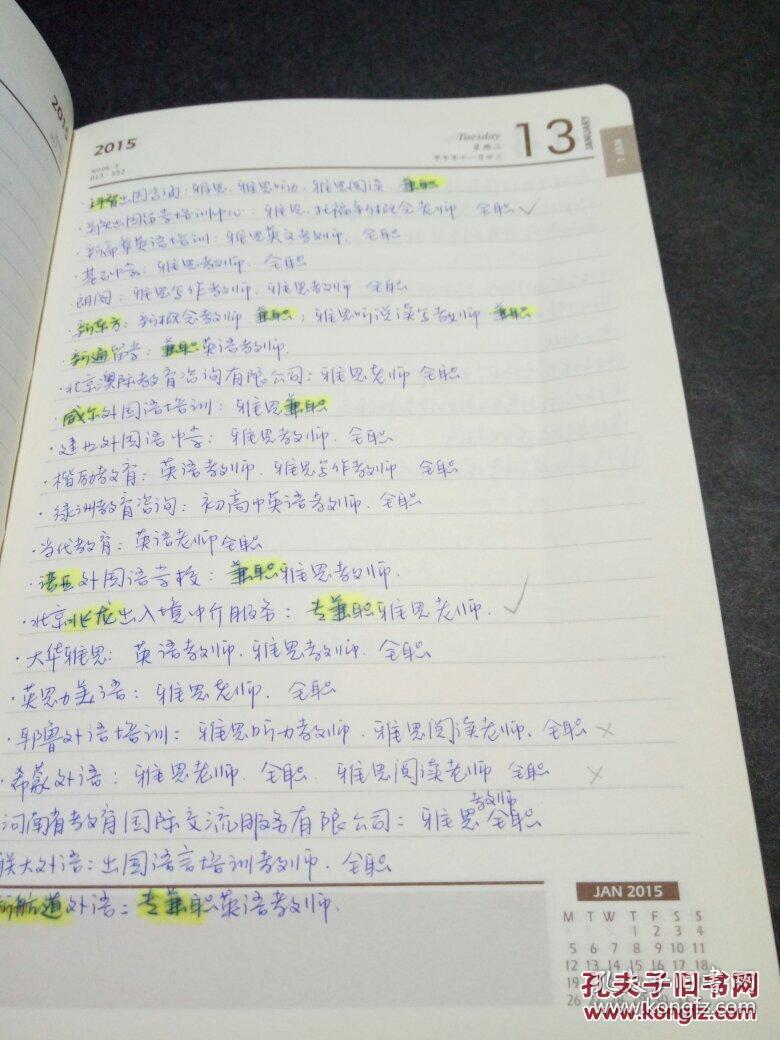 2015
2015
week 3
013 - 352
Tuesday
星期二
甲午年十一月廿三
13
JANUARY
1 JAN
出国咨询：雅思、雅思听力、雅思阅读 兼职
出国语言培训中心：雅思、托福、新概念老师 全职 ✓
·新希望英语培训：雅思英文教师、全职
·基石中学：雅思教师、全职
·朗阁：雅思写作教师、雅思教师 全职
·新东方：新概念教师 兼职；雅思听说读写教师 兼职
·新通留学：兼职英语教师.
·北京澳际教育咨询有限公司：雅思老师 全职
·威尔外国语培训：雅思兼职
·建业外国语中学：雅思教师. 全职
·楷励教育：英语教师. 雅思写作教师. 全职
·绿洲教育咨询：初高中英语教师. 全职
·当代教育：英语老师全职
外国语学校：兼职雅思教师.
·北京 出入境中介服务：专兼职雅思老师. ✓
·大华雅思：英语教师. 雅思教师. 全职
·英思力美语：雅思老师. 全职
·郭鲁外语培训：雅思听力教师. 雅思阅读老师. 全职 ×
·希蒙外语：雅思老师. 全职. 雅思阅读老师 全职 ×
河南省教育国际交流服务有限公司：雅思教师全职
联大外语：出国语言培训教师. 全职
新航道外语：专兼职英语教师.
JAN 2015
M T W T F S S
1 2 3 4
5 6 7 8 9 10 11
12 13 14 15 16 17 18
19
26
孔夫子旧书网
www.kongfz.com